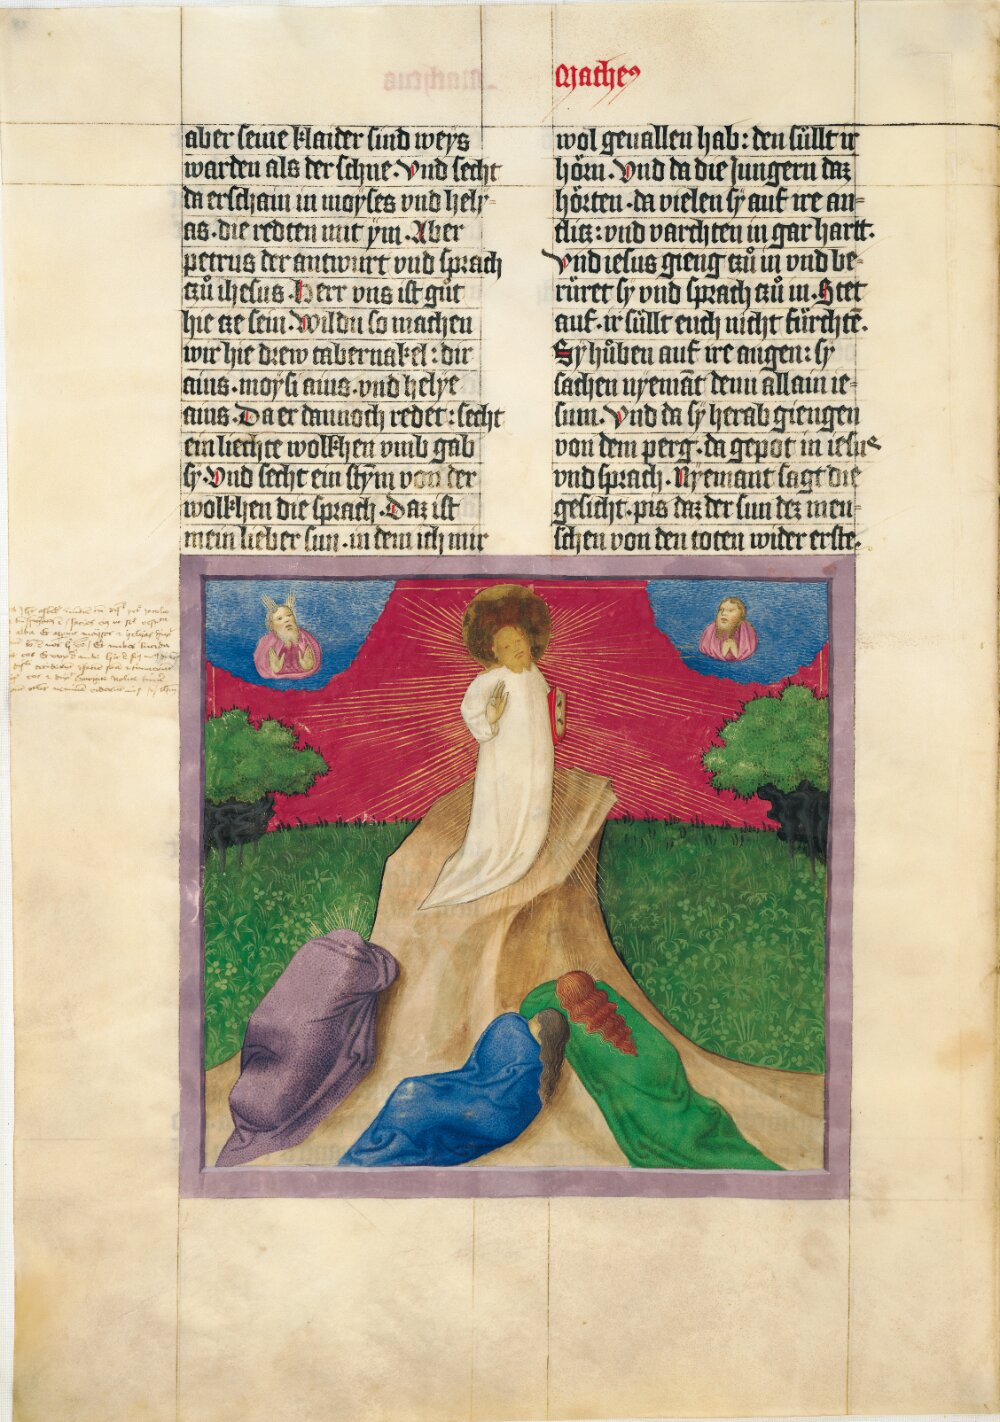 Mathe9
aber seine klaider sind weys
warden als der schne. Vnd secht
da erschain in moyses vnd hely-
as. die redten mit ẏm. Aber
petrus der antwurt vnd sprach
czů ihesus. Herr vns ist gůt
hie cze sein. Wildu so machen
wir hie drew tabernakel: dir
ains. moysi ains. vnd helye
ains. Da er dannoch redet: secht
ein liechte wolkhen vmb gab
sy. Vnd secht ein stym von der
wolkhen die sprach. Daz ist
mein lieber sun. in dem ich mir
wol geuallen hab: den süllt ir
hörn. Vnd da die Jungern daz
hörten. da vielen sy auf ire an-
tlicz: vnd varchten in gar hartt.
Vnd iesus gieng czů in vnd be-
rüret sy vnd sprach czů in. Stet
auf. ir süllt euch nicht fürchtē.
Sy hůben auf ire augen: sy
sachen nyemāt denn allain ie-
sum. Vnd da sy herab giengen
von dem perg. da gepot in iesus
vnd sprach. Nyemant sagt die
gesicht. pis daz der sun dez men-
schen von den toten wider erste.